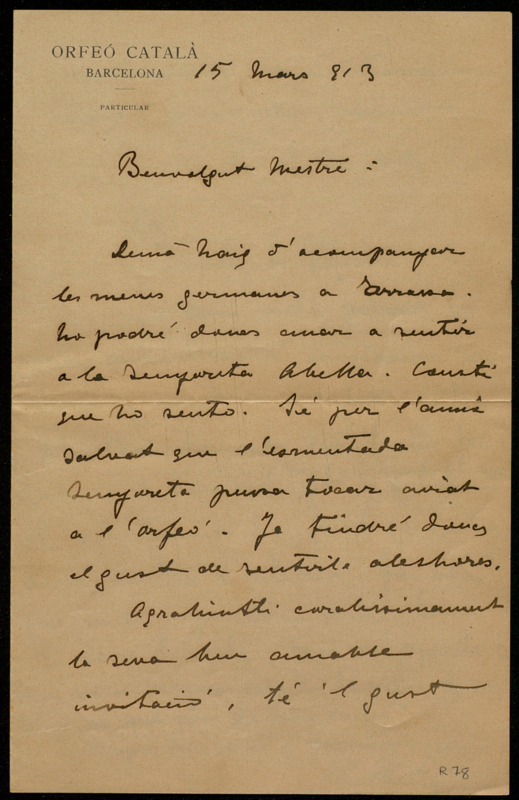 ORFEÓ CATALÀ
BARCELONA
PARTICULAR
15 Mars 913
Benvolgut Mestre :
Demà haig d'acompanyar
les meues germanes a Terrassa.
No podré donchs anar a sentir
a la Senyoreta Abella. Consti
que ho sento. Sé per l'amic
Salvat que l'esmentada
senyoreta pensa tocar aviat
a l'Orfeó. Ja tindré donchs
el gust de sentirla aleshores.
Agrahintli coralissimament
la seva ben amable
invitació, té 'l gust
R 78